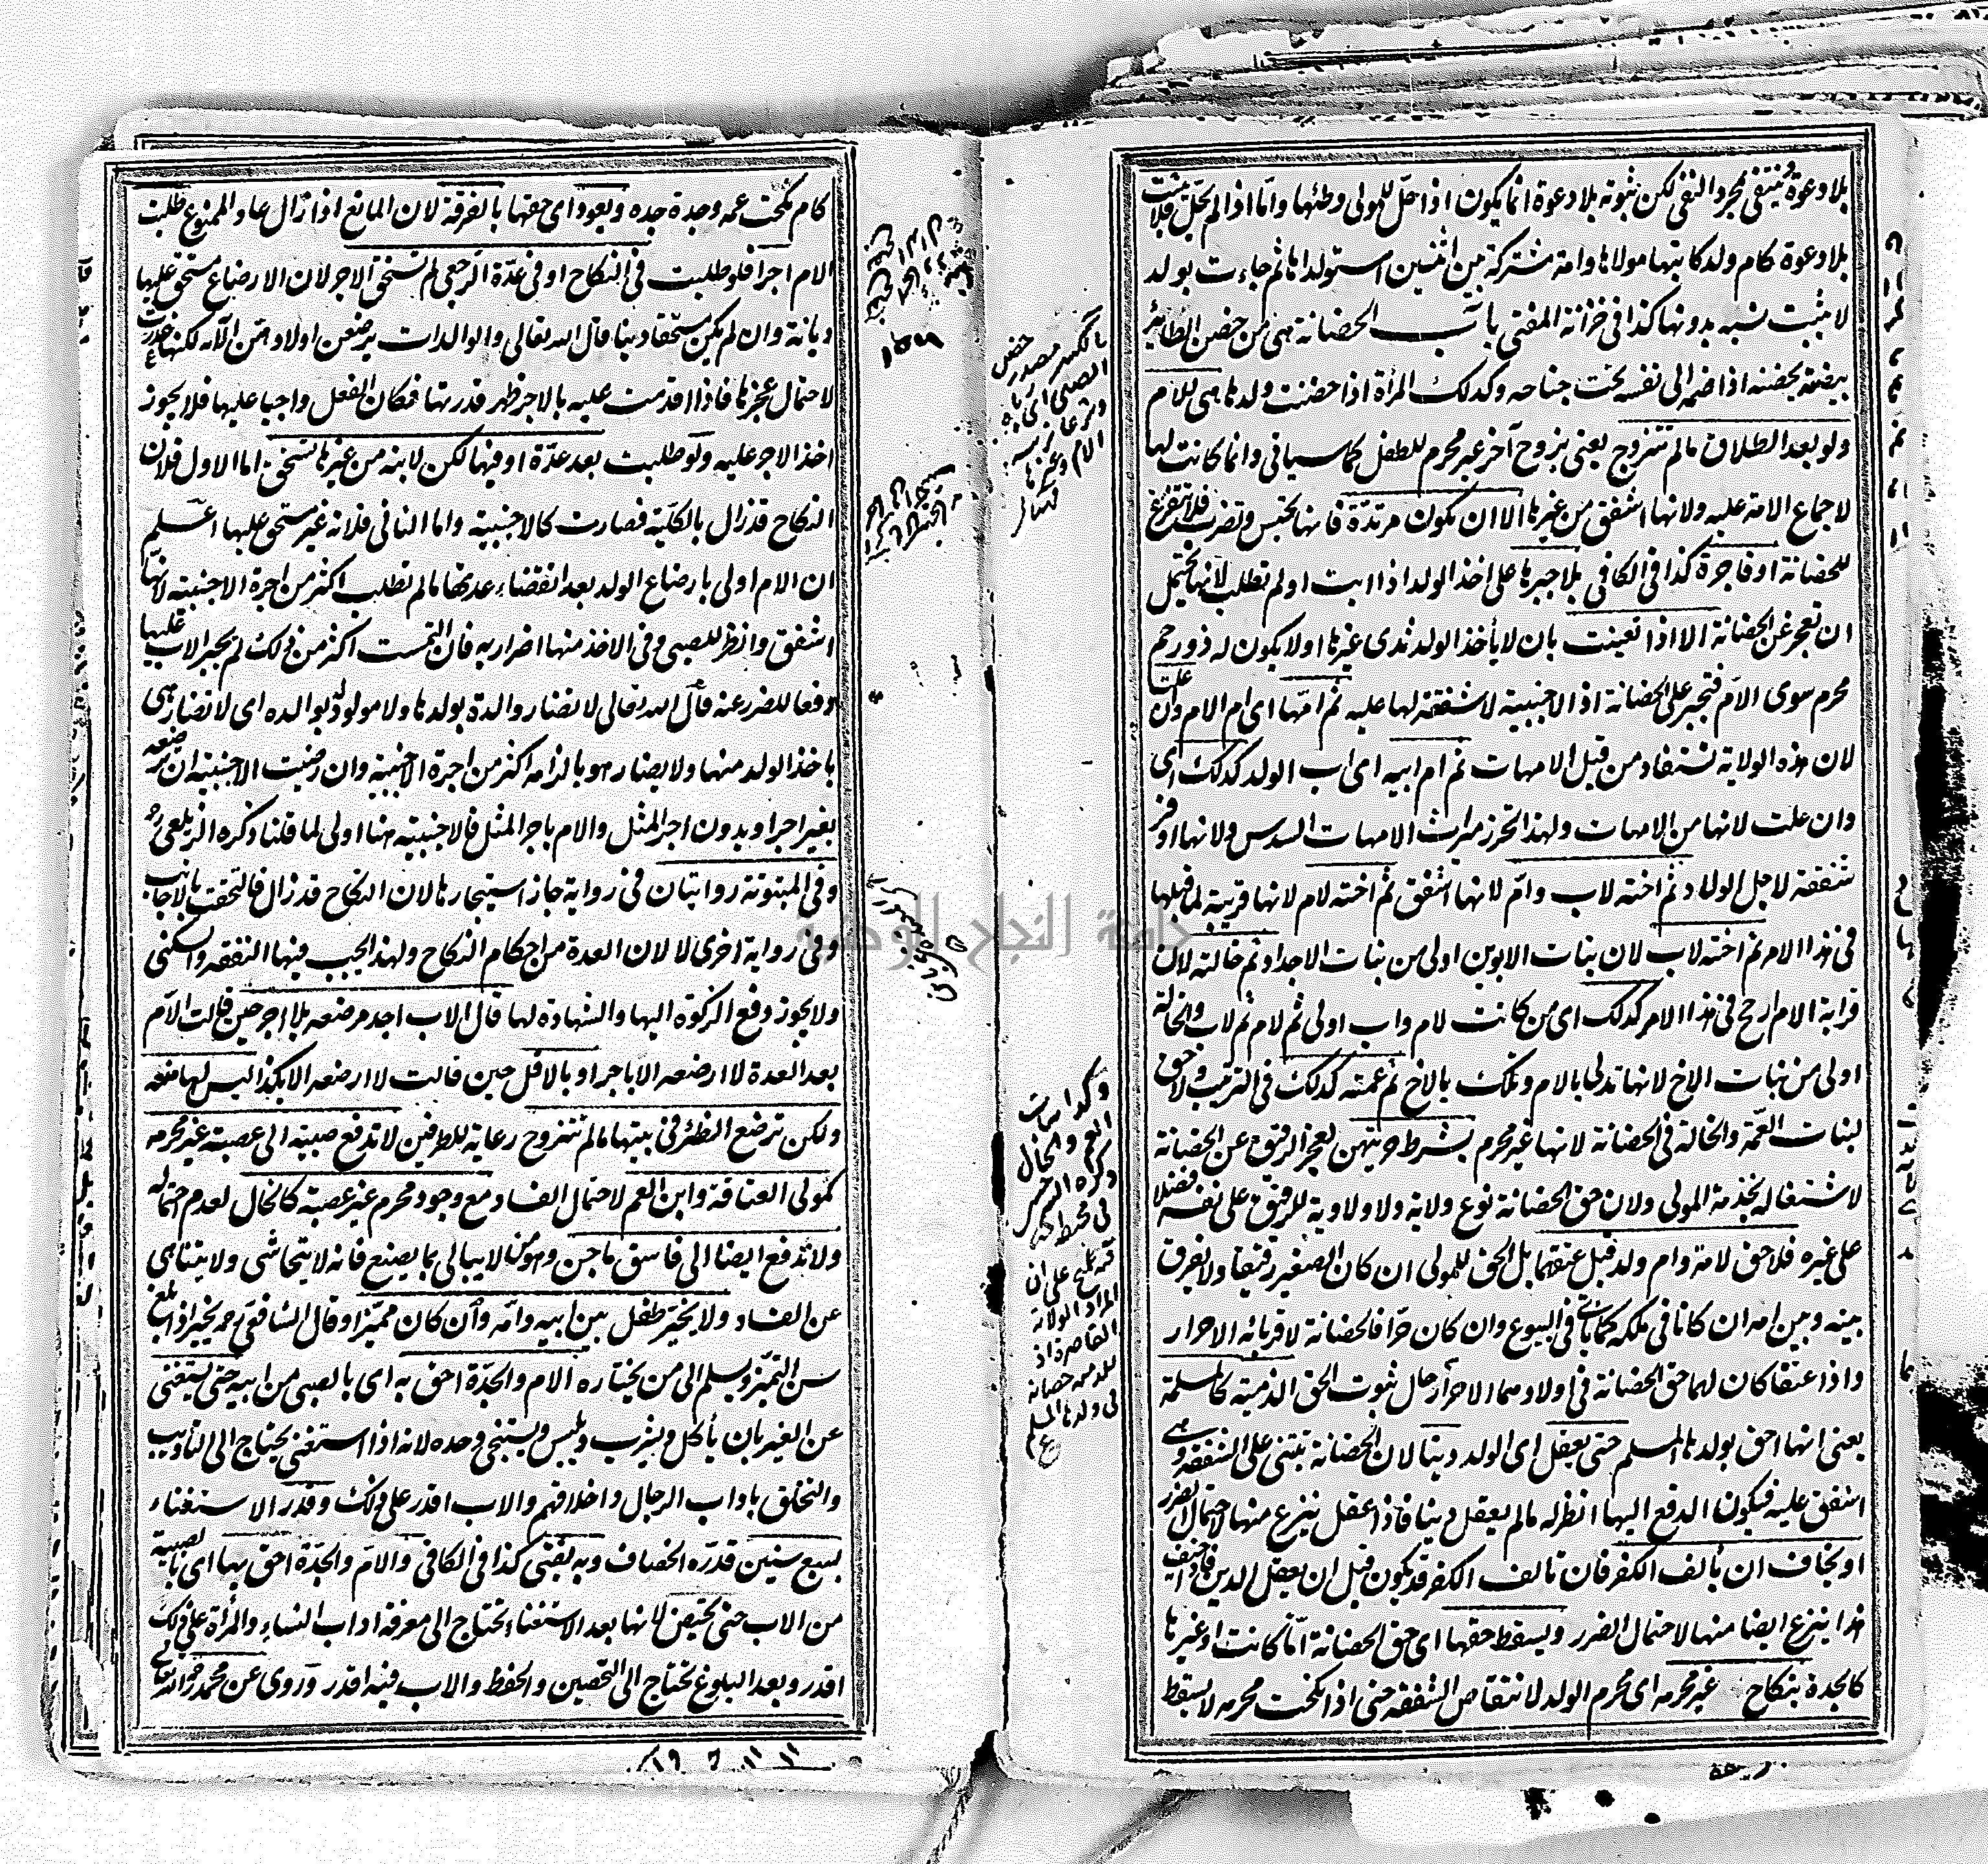 بلا دعوة ينتفى بمجرد النفى لكن ثبوته بلا دعوة انما يكون اذا حل للمولى وطئها واما اذا لم يحل فلا يثبت
بلا دعوة كام ولد كاتبها مولاها وامة مشتركة بين اثنين استولداها ثم جاءت بولد
لا يثبت نسبه بدونها كذا فى خزانة المفتى باب الحضانة هى من حضن الطائر
بيضه يحضنه اذا ضمه الى نفسه تحت جناحه وكذلك المرأة اذا حضنت ولدها هى للام
ولو بعد الطلاق ما لم تتزوج يعنى بزوج آخر غير محرم للطفل كما سياتى وانما كانت لها
لاجماع الامة عليه ولانها اشفق من غيرها الا ان يكون مرتدة فانها تحبس وتضرب فلا تتفرغ
للحضانة او فاجرة كذا فى الكافى بلا جبرها على اخذ الولد اذا ابت او لم تطلب لانها تحتمل
ان تعجز عن الحضانة الا اذا تعينت بان لا يأخذ الولد ثدى غيرها او لا يكون له ذو رحم
محرم سوى الام فتجبر على الحضانة اذ الاجنبية لا شفقة لها عليه ثم امها اى ام الام وان علت
لان هذه الولاية تستفاد من قبل الامهات ثم ام ابيه اى اب الولد كذلك اى
وان علت لانها من الامهات ولهذا تحرز ميراث الامهات السدس ولانها اوفر
شفقة لاجل الولاد ثم اخته لاب وام لانها اشفق ثم اخته لام لانها قريبة لما قبلها
فى هذا الامر ثم اخته لاب لان بنات الابوين اولى من بنات الاجداد ثم خالته لان
قرابة الام ارجح فى هذا الامر كذلك اى من كانت لام واب اولى ثم لام ثم لاب والخالة
اولى من بنات الاخ لانها تدلى بالام وتلك بالاخ ثم عمته كذلك فى الترتيب ولا حق
لبنات العمة والخالة فى الحضانة لانها غير محرم بشرط حريتهن لعجز الرقيق عن الحضانة
لاشتغاله بخدمة المولى ولان حق الحضانة نوع ولاية ولا ولاية للرقيق على نفسه فضلا
على غيره فلا حق لامة وام ولد قبل عتقهما بل الحق للمولى ان كان الصغير رقيقا ولا يفرق
بينه وبين امه ان كانا فى ملكه كما يأتى فى البيوع وان كان حرا فالحضانة لاقربائه الاحرار
واذا عتقا كان لهما حق الحضانة فى اولادهما الاحرار حال ثبوت الحق الذمية كالمسلمة
يعنى انها احق بولدها المسلم حتى يعقل اى الولد دينا لان الحضانة تبتنى على الشفقة وهى
اشفق عليه فيكون الدفع اليها انظر له ما لم يعقل دينا فاذا عقل ينزع منها لاحتمال الضرر
او يخاف ان يألف الكفر فان تألف الكفر قد يكون قبل ان يعقل الدين فاذا خيف
هذا ينزع ايضا منها لاحتمال الضرر ويسقط حقها اى حق الحضانة اما كانت او غيرها
كالجدة بنكاح غير محرمه اى محرم الولد لانتقاص الشفقة حتى اذا نكحت محرمه لا يسقط
بالكسر مصدر حضن
وكذا بنات
العم والخال
ذكره السرخسى
فى محيطه
كام نكحت عمه وجدة جده ويعود اى حقها بالفرقة لان المانع اذا زال عاد الممنوع طلبت
الام اجرا فلو طلبت فى النكاح او فى عدة الرجعى لم تستحق الاجر لان الارضاع مستحق عليها
ديانة وان لم يكن مستحقا دينا قال الله تعالى والوالدات يرضعن اولادهن الآية لكنها عذرت
لاحتمال عجزها فاذا اقدمت عليه بالاجر ظهر قدرتها فكان الفعل واجبا عليها فلا يجوز
اخذ الاجر عليه ولو طلبت بعد عدة او فيها لكن لابنه من غيرها تستحق اما الاول فلان
النكاح قد زال بالكلية فصارت كالاجنبية واما الثانى فلانه غير مستحق عليها اعلم
ان الام اولى بارضاع الولد بعد انقضاء عدتها ما لم تطلب اكثر من اجرة الاجنبية لانها
اشفق وانظر للصبى وفى الاخذ منها اضرار به فان التمست اكثر من ذلك لم يجبر الاب عليها
دفعا للضرر عنه قال الله تعالى لا تضار والدة بولدها ولا مولود له بولده اى لا تضار هى
باخذ الولد منها ولا يضار هو بالزامه اكثر من اجرة الاجنبية وان رضيت الاجنبية ان ترضعه
بغير اجر او بدون اجر المثل والام باجر المثل فالاجنبية هنا اولى لما قلنا ذكره الزيلعى
وفى المبتوتة روايتان فى رواية جاز استيجارها لان النكاح قد زال فالتحقت بالاجانب
وفى رواية اخرى لا لان العدة من احكام النكاح ولهذا يجب فيها النفقة والسكنى
ولا يجوز دفع الزكوة اليها والشهادة لها قال الاب اجد مرضعة بلا اجر حين قالت الام
بعد العدة لا ارضعه الا باجر او بالاقل حين قالت لا ارضعه الا بكذا ليس لها منعه
ولكن ترضع الظئر فى بيتها ما لم تتزوج رعاية للطرفين لا تدفع صبية الى عصبة غير محرم
كمولى العتاقة وابن العم لاحتمال الفساد مع وجود محرم غير عصبة كالخال لعدم احتماله
ولا تدفع ايضا الى فاسق ماجن وهو من لا يبالى بما يصنع فانه لا يتحاشى ولا يتناهى
عن الفساد ولا يخير طفل بين ابيه وامه وان كان مميزا وقال الشافعى رحمه يخير اذا بلغ
سن التميز ويسلم الى من يختاره الام والجدة احق به اى بالصبى من ابيه حتى يستغنى
عن الغير بان يأكل ويشرب ويلبس ويستنجى وحده لانه اذا استغنى يحتاج الى التأديب
والتخلق باداب الرجال واخلاقهم والاب اقدر على ذلك وقدر الاستغناء
بسبع سنين قدره الخصاف وبه يفتى كذا فى الكافى والام والجدة احق بها اى بالصبية
من الاب حتى تحيض لانها بعد الاستغناء تحتاج الى معرفة اداب النساء والمرأة على ذلك
اقدر وبعد البلوغ تحتاج الى التحصين والحفظ والاب فيه اقدر وروى عن محمد
جامعة النجاح الوطنية